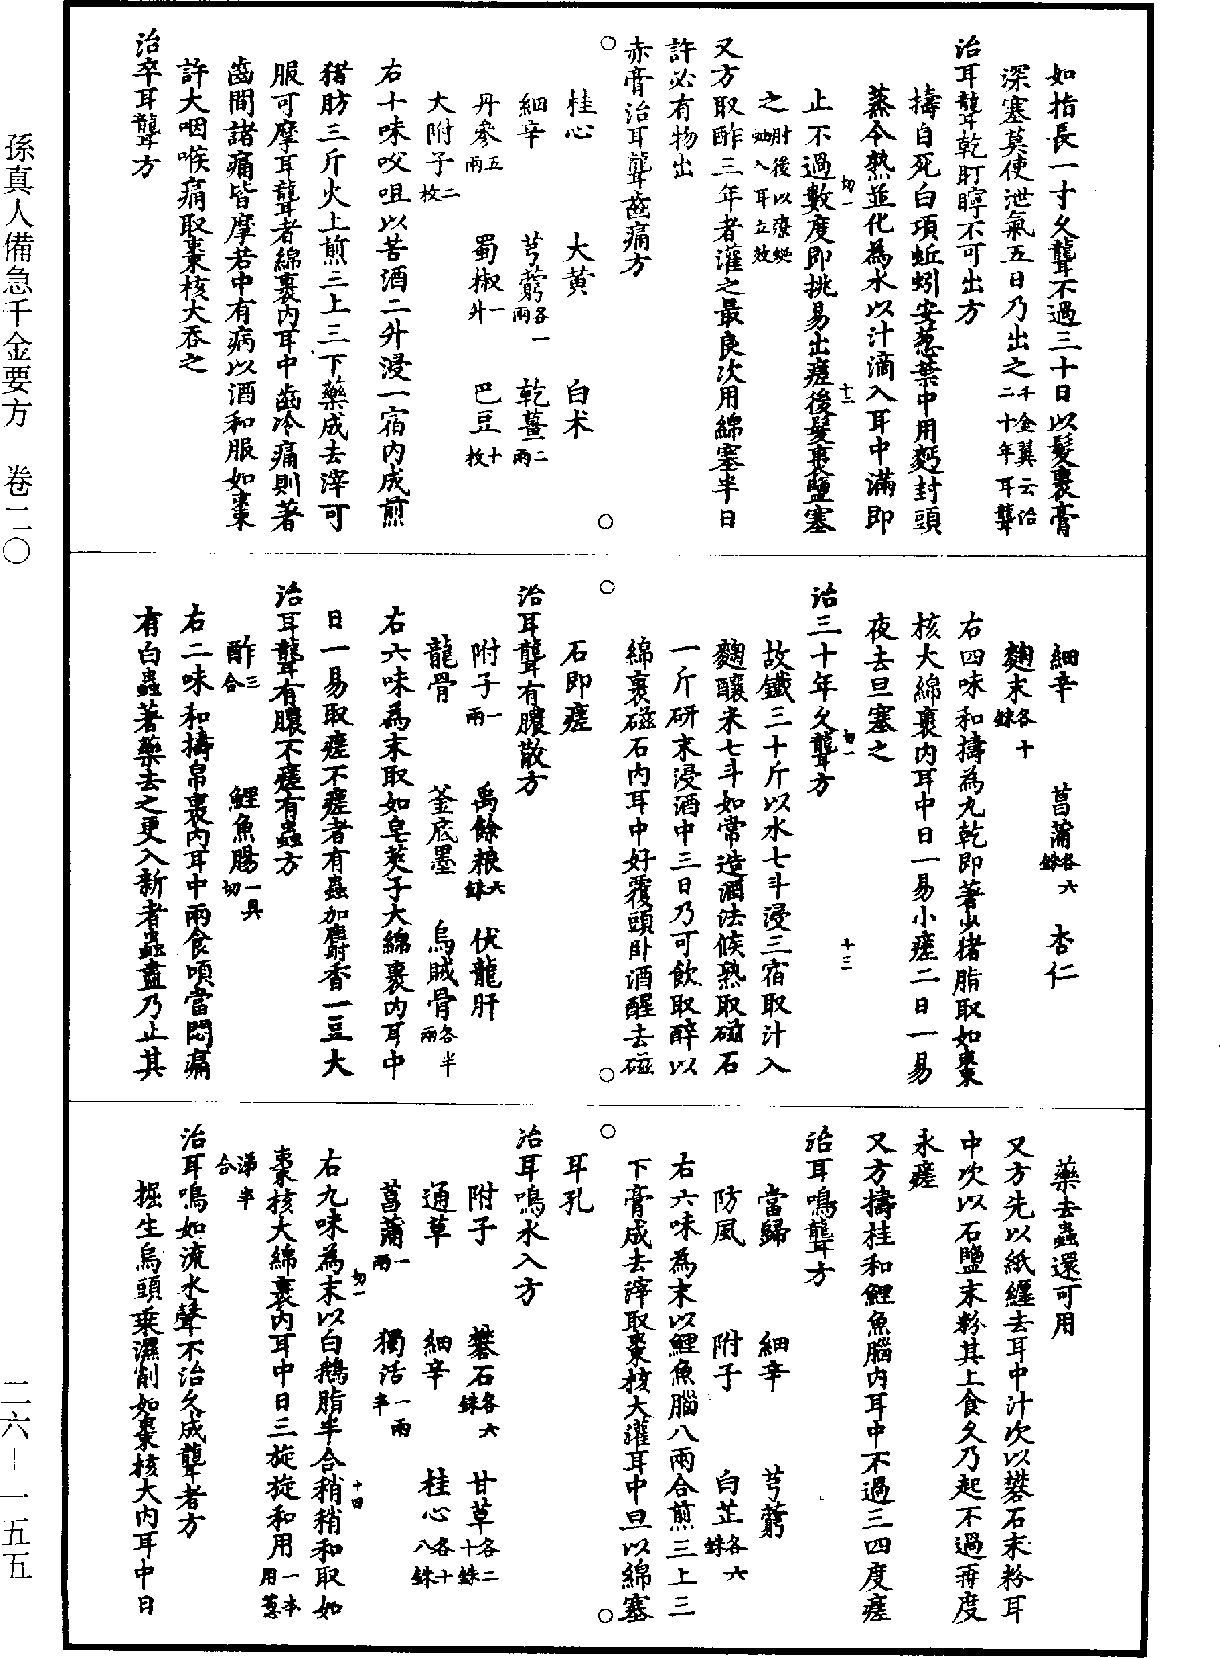 如指長一寸久聾不過三十日以髮裹膏
深塞莫使泄氣五日乃出之千金翼云治二十年耳聾
治耳聾乾耵聹不可出方
擣自死白項蚯蚓安葱葉中用麪封頭
蒸令熟並化為水以汁滴入耳中滿即
止不過數度即挑易出瘥後髮裹鹽塞
之肘後以療蚰蜒入耳立效
又方取酢三年者灌之最良次用綿塞半日
許必有物出
赤膏治耳聾齒痛方
桂心 大黄 白术
細辛 芎藭各一兩 乾薑二兩
丹參五兩 蜀椒一升 巴豆十枚
大附子二枚
右十味㕮咀以苦酒二升浸一宿内成煎
猪肪三斤火上煎三上三下藥成去滓可
服可摩耳聾者綿裹内耳中齒冷痛則著
齒間諸痛皆摩若中有病以酒和服如棗
許大咽喉痛取棗核大吞之
治卒耳聾方
細辛 菖蒲各六銖 杏仁
麴末各十銖
右四味和擣為丸乾即著少猪脂取如棗
核大綿裹内耳中日一易小瘥二日一易
夜去旦塞之
治三十年久聾方
故鐵三十斤以水七斗浸三宿取汁入
麴釀米七斗如常造酒法候熟取磁石
一斤研末浸酒中三日乃可飲取醉以
綿裹磁石内耳中好覆頭卧酒醒去磁
石即瘥
治耳聾有膿散方
附子一兩 禹餘粮六銖 伏龍肝
龍骨 釜底墨 烏賊骨各半兩
右六味為末取如皂莢子大綿裹内耳中
日一易取瘥不瘥者有蟲加麝香一豆大
治耳聾有膿不瘥有蟲方
酢三合 鯉魚腸一具切
右二味和擣帛裹内耳中兩食頃當悶痛
有白蟲著藥去之更入新者蟲盡乃止其
藥去蟲還可用
又方先以紙纏去耳中汁次以礬石末粉耳
中次以石鹽末粉其上食久乃起不過再度
永瘥
又方擣桂和鯉魚腦内耳中不過三四度瘥
治耳鳴聾方
當歸 細辛 芎藭
防風 附子 白芷各六銖
右六味為末以鯉魚腦八兩合煎三上三
下膏成去滓取棗核大灌耳中旦以綿塞
耳孔
治耳鳴水入方
附子 礬石各六銖 甘草各二十銖
通草 細辛 桂心各十八銖
菖蒲一兩 獨活一兩半
右九味為末以白鵝脂半合稍稍和取如
棗核大綿裹内耳中日三旋旋和用一本用葱
涕半合
治耳鳴如流水聲不治久成聾者方
掘生烏頭乘濕削如棗核大内耳中日
切一
十二
切一
十三
切一
十四
孫真人備急千金要方 卷二〇
二六－一五五